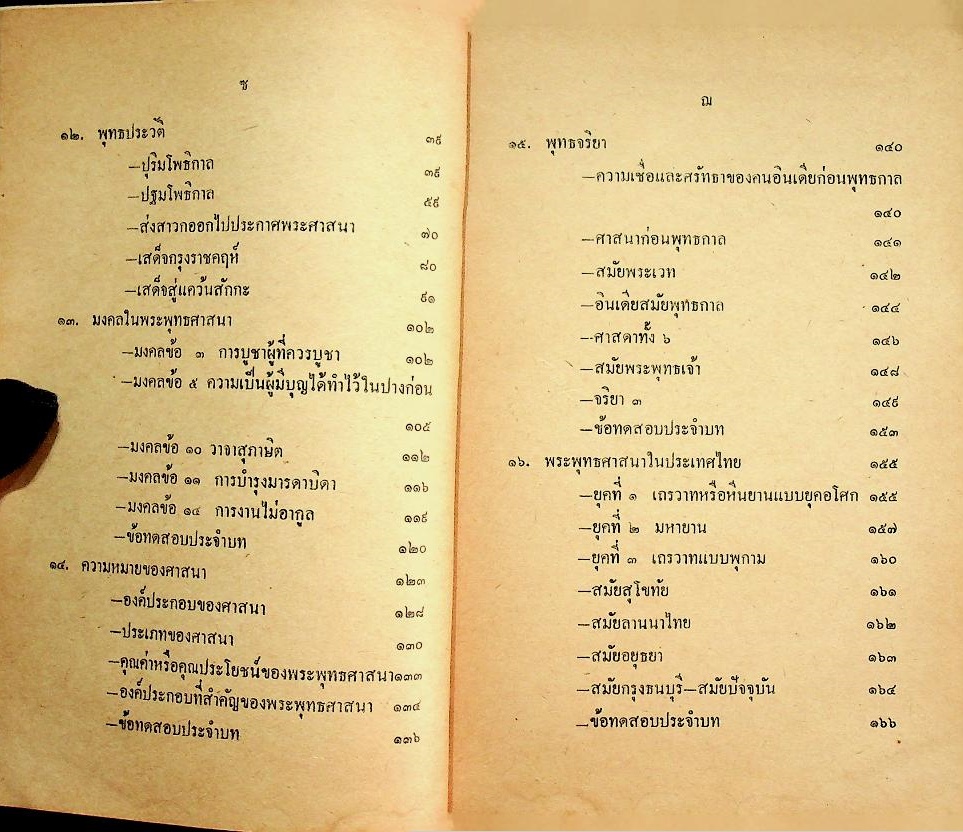 ซ
๑๒. พุทธประวัติ ๓๙
—ปุริมโพธิกาล ๓๙
—ปฐมโพธิกาล ๕๙
—ส่งสาวกออกไปประกาศพระศาสนา ๗๐
—เสด็จกรุงราชคฤห์ ๘๐
—เสด็จสู่แคว้นสักกะ ๙๑
๑๓. มงคลในพระพุทธศาสนา ๑๐๒
—มงคลข้อ ๓ การบูชาผู้ที่ควรบูชา ๑๐๒
—มงคลข้อ ๕ ความเป็นผู้มีบุญได้ทำไว้ในปางก่อน
๑๐๕
—มงคลข้อ ๑๐ วาจาสุภาษิต ๑๑๒
—มงคลข้อ ๑๑ การบำรุงมารดาบิดา ๑๑๖
—มงคลข้อ ๑๔ การงานไม่อากูล ๑๑๙
—ข้อทดสอบประจำบท ๑๒๐
๑๔. ความหมายของศาสนา ๑๒๓
—องค์ประกอบของศาสนา ๑๒๘
—ประเภทของศาสนา ๑๓๐
—คุณค่าหรือคุณประโยชน์ของพระพุทธศาสนา๑๓๓
—องค์ประกอบที่สำคัญของพระพุทธศาสนา ๑๓๔
—ข้อทดสอบประจำบท ๑๓๖
ฌ
๑๕. พุทธจริยา ๑๔๐
—ความเชื่อและศรัทธาของคนอินเดียก่อนพุทธกาล
๑๔๐
—ศาสนาก่อนพุทธกาล ๑๔๑
—สมัยพระเวท ๑๔๒
—อินเดียสมัยพุทธกาล ๑๔๔
—ศาสดาทั้ง ๖ ๑๔๖
—สมัยพระพุทธเจ้า ๑๔๘
—จริยา ๓ ๑๔๙
—ข้อทดสอบประจำบท ๑๕๓
๑๖. พระพุทธศาสนาในประเทศไทย ๑๕๕
—ยุคที่ ๑ เถรวาทหรือหีนยานแบบยุคอโศก ๑๕๕
—ยุคที่ ๒ มหายาน ๑๕๗
—ยุคที่ ๓ เถรวาทแบบพุกาม ๑๖๐
—สมัยสุโขทัย ๑๖๑
—สมัยลานนาไทย ๑๖๒
—สมัยอยุธยา ๑๖๓
—สมัยกรุงธนบุรี—สมัยปัจจุบัน ๑๖๔
—ข้อทดสอบประจำบท ๑๖๖